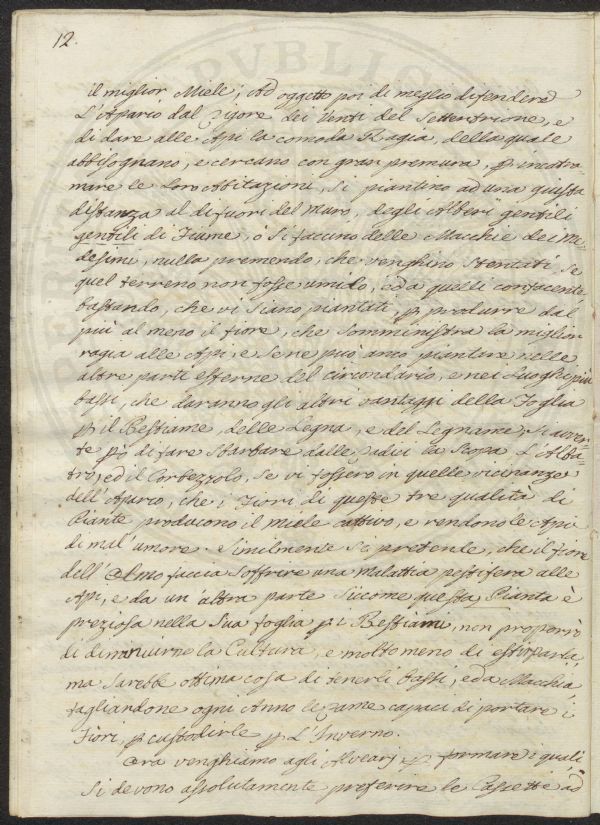 12.
il miglior Miele; Ad oggetto poi di meglio difendere
L'Apario dal rigore dei Venti del Settentrione, e
di dare alle Api la comoda Ragia, della quale
abbisognano, e cercano con gran premura, p incatra-
mare le loro Abitazioni, si piantino ad una giusta
distanza al di fuori del muro, degli Alberi gentili
gentili di Fiume, o si facino delle Macchie dei me-
desimi, nulla premendo, che venghino stentati, se
quel terreno non fosse umido, ed a quelli confacente
bastando, che vi siano piantati, p produrre dal
più al meno il fiore, che somministra la miglior
ragia alle Api, e se ne può anco piantare nelle
altre parti esterne del circondario, e nei Luoghi più
bassi, che daranno gli altri vantaggi della Foglia
p il Bestiame, delle Legna, e del Legname, si avver-
te pò di fare sbarbare dalle radici la Scopa, L'Alba-
tro, ed il Corbezzolo, se vi fossero in quelle vicinanze
dell'Apario, che i Fiori di queste tre qualità di
Piante producono il miele cattivo, e rendono le Api
di mal'umore. Similmente si pretende, che il fiore
dell'Olmo faccia soffrire una malattia pestifera alle
Api, e da un'altra parte siccome questa Pianta è
preziosa nella sua foglia p i Bestiami, non proporrò
di diminuirne la Cultura, e molto meno di estirparla,
ma sarebbe ottima cosa di tenerli bassi, ed a Macchia
tagliandone ogni Anno le rame capaci di portare i
Fiori, p custodirle p L'Inverno.
Ora venghiamo agli Alvearj p formare i quali
si devono assolutamente preferire le Cassette ad